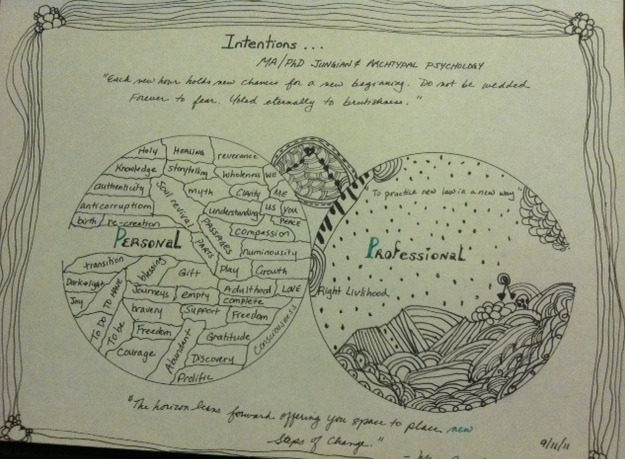 Intentions ...
MA/PhD JUNGIAN & ARCHTYPAL PSYCHOLOGY
"Each new hour holds new chances for a new beginning. Do not be wedded
Forever to fear. Yoked eternally to brutishness."
Holy
HEALING
reverance
Knowledge
storytelling
Wholeness
WE
authenticity
Soul revival
myth
Clarity
ME
anticorruption
understanding
US
YOU
birth
re-creation
PASSAGES
PEACE
compassion
PERSONAL
PARIS
numinousity
transition
blessing
Gift
Play
Growth
Dark+light
TO HAVE
Journeys
empty
Adulthood
LOVE
Joy
TO DO
bravery
Support
complete
Freedom
To be
Freedom
Abundant
Gratitude
Consciousness
Courage
Discovery
Prolific
"To practice new law in a new way"
PROFESSIONAL
Right Livlihood
"The horizon leans forward offering you space to place new
Steps of Change."
9/11/11